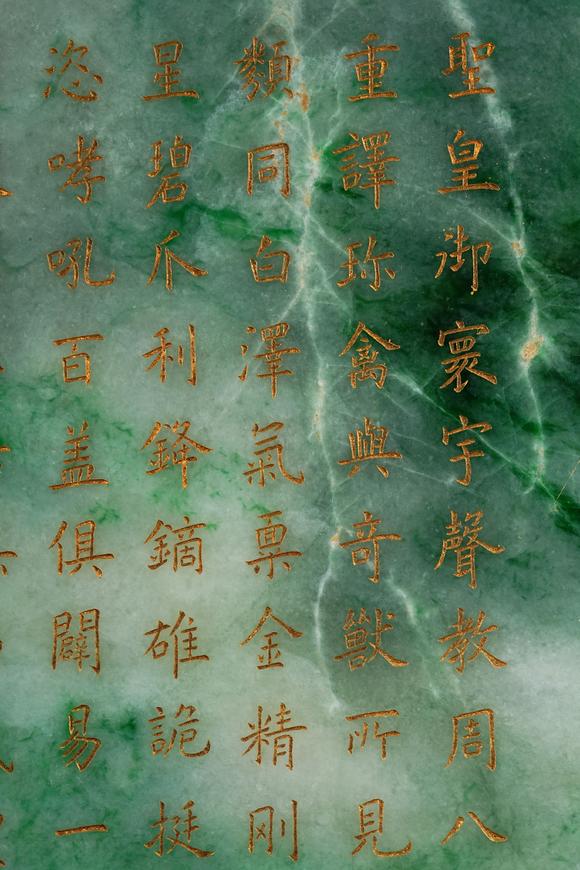 聖皇御寰宇聲教周八
重譯珎禽與竒獸所見
類同白澤氣禀金精剛
星碧爪利鋒鏑雄詭挺
恣哮吼百盖俱闢易一